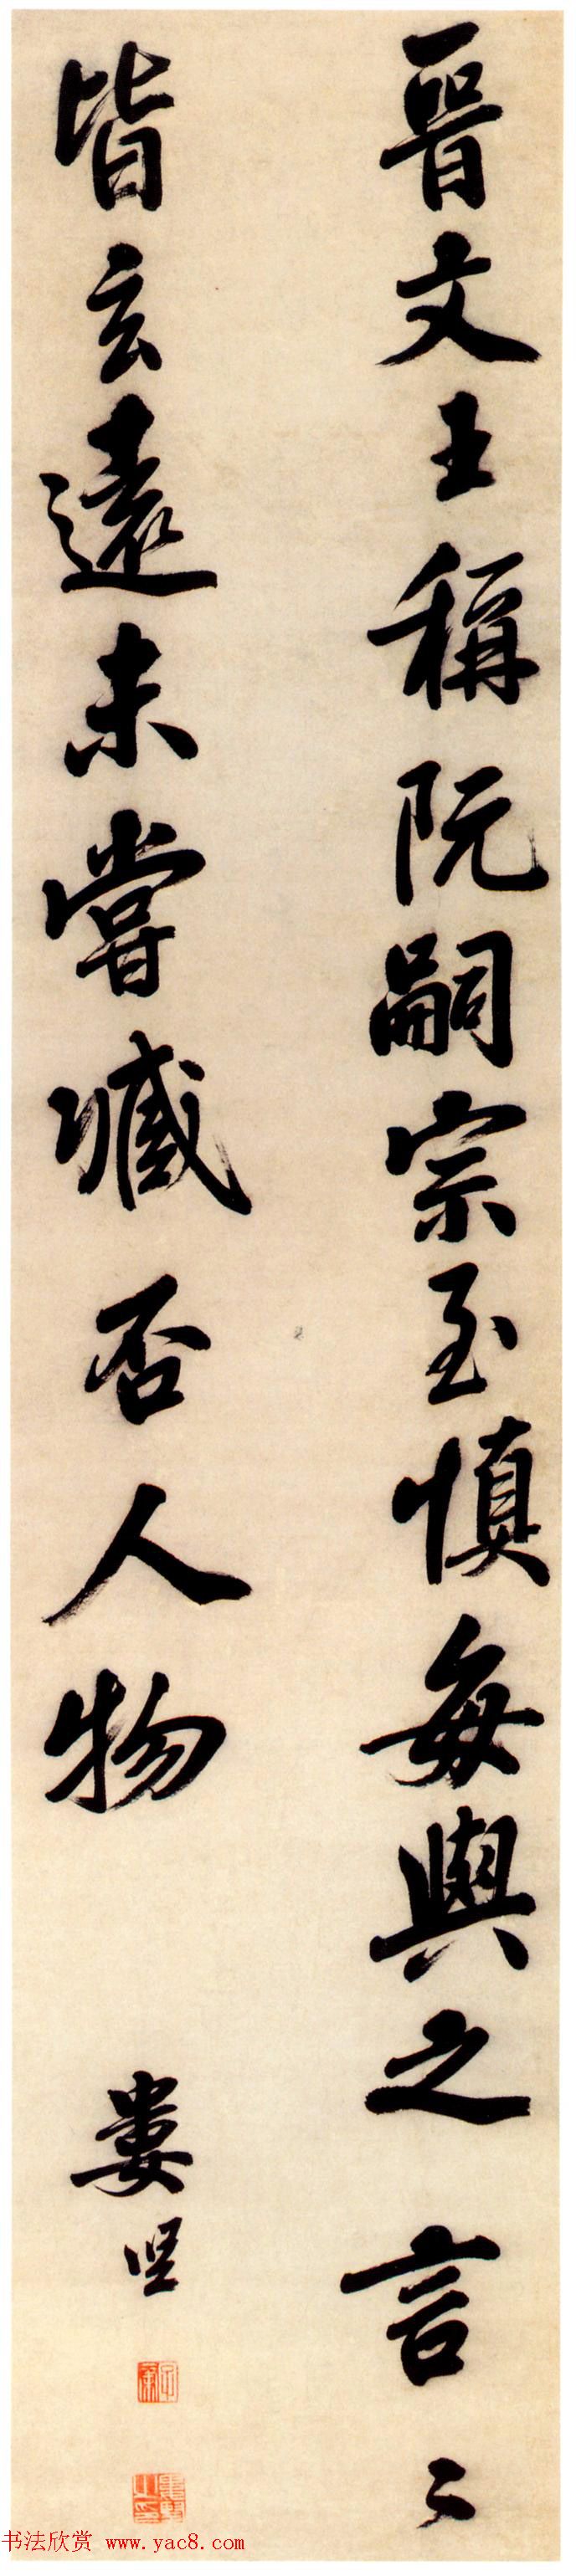 晉文王稱阮嗣宗至慎每與之言〻
皆玄遠未嘗臧否人物
婁堅
书法欣赏 www.yac8.com